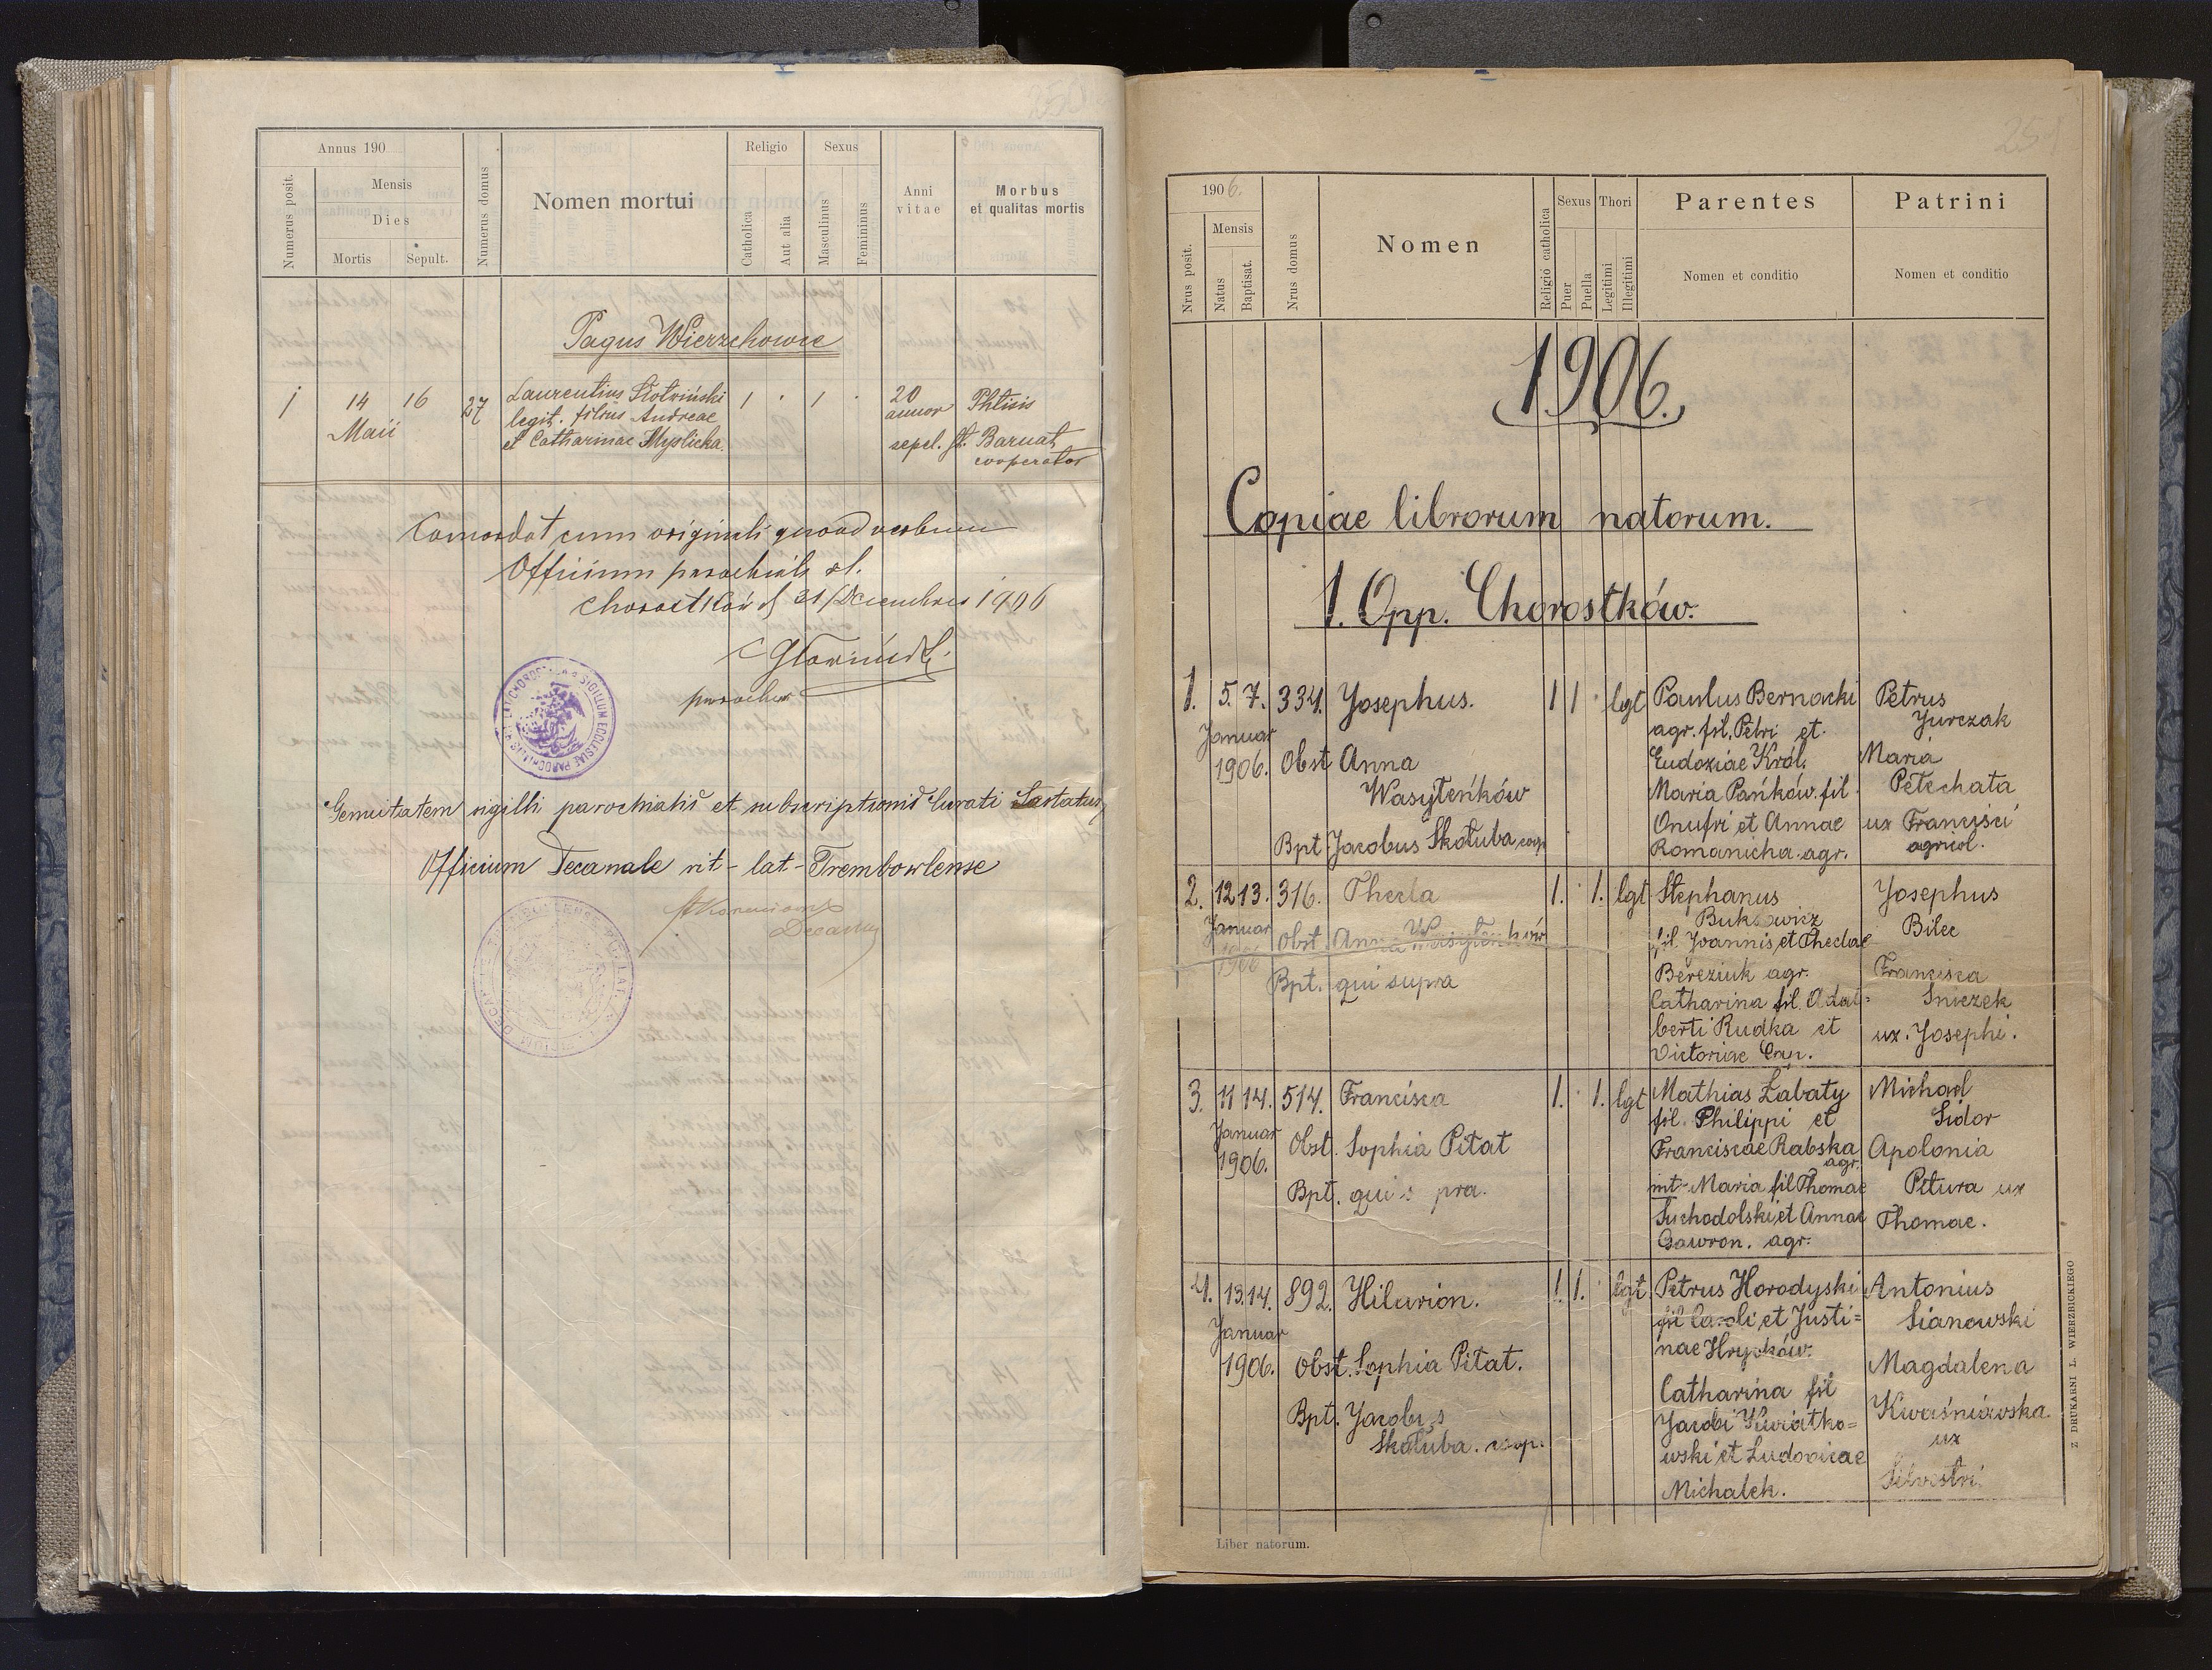 Annus 190
Numerus posit.
Mensis
Dies
Mortis
Sepult.
Numerus domus
Nomen mortui
Religio
Catholica
Aut alia
Sexus
Masculinus
Femininus
Anni vitae
Morbus
et qualitas mortis
Pagus Wierzchowce
1 14 16 27 Laurentius Slotwiński 1 · 1 · 20 Phtisis
Maii legit. filius Andreae annor
et Catharinae Myslicka. sepel. Barnat
cooperator
Concordat cum originali quoad verbum
Officium parochiale
Chorostków 31/Decembris 1906
parochus
Genuitatem sigilli parochialis et subscriptionis Curati
Officium Decanale rit-lat-Trembowlense
Decanus
251
1906.
Nrus posit.
Mensis
Natus
Baptisat.
Nrus domus
Nomen
Religio catholica
Sexus
Puer
Puella
Thori
Legitimi
Illegitimi
Parentes
Nomen et conditio
Patrini
Nomen et conditio
1906.
Copiae librorum natorum.
1. Opp. Chorostków.
1. 5. 7. 334. Josephus. 1 1 · lgt
Januar
1906. Obst Anna
Wasyleńków
Bpt Jacobus Skołuba coop
Paulus Bernacki
agr. fil. Petri et
Eudoxiae Król.
Maria Pańków. fil
Onufri et Annae
Romanicha. agr.
Petrus
Jurczak
Maria
Petechata
ux Francisci
agricol.
2. 12 13. 316. Thecla 1. · 1. lgt
Januar
1906 Obst. Anna Wasyleńków
Bpt. qui supra
Stephanus
fil. Joannis et Theclae
Bereziuk agr.
Catharina fil. Adal=
berti Rudka et
Victoriae
Josephus
Bilec
Francisca
Sniezek
ux. Josephi.
3. 11 14. 514. Francisca 1. · 1. lgt
Januar
1906. Obst. Sophia Pitat
Bpt. qui s pra.
Mathias Łabaty
fil. Philippi et
Franciscae Rabska
agr.
mt- Maria fil Thomae
Suchodolski et Annae
Gawron. agr.
Michael
Sidor
Apolonia
Pitura ux
Thomae.
4. 13. 14. 892. Hilarion. 1. 1. · lgt
Januar
1906. Obst. Sophia Pitat.
Bpt. Jacobus
Skołuba. coop.
Petrus Horodyski
fil Caroli et Justi=
nae Hrycków.
Catharina fil
Jacobi Kwiatko=
wski et Ludovicae
Michalek.
Antonius
Sianowski
Magdalena
Kwaśniowska
ux
Silvestri.
Liber natorum.
Z DRUKARNI L. WIERZBICKIEGO